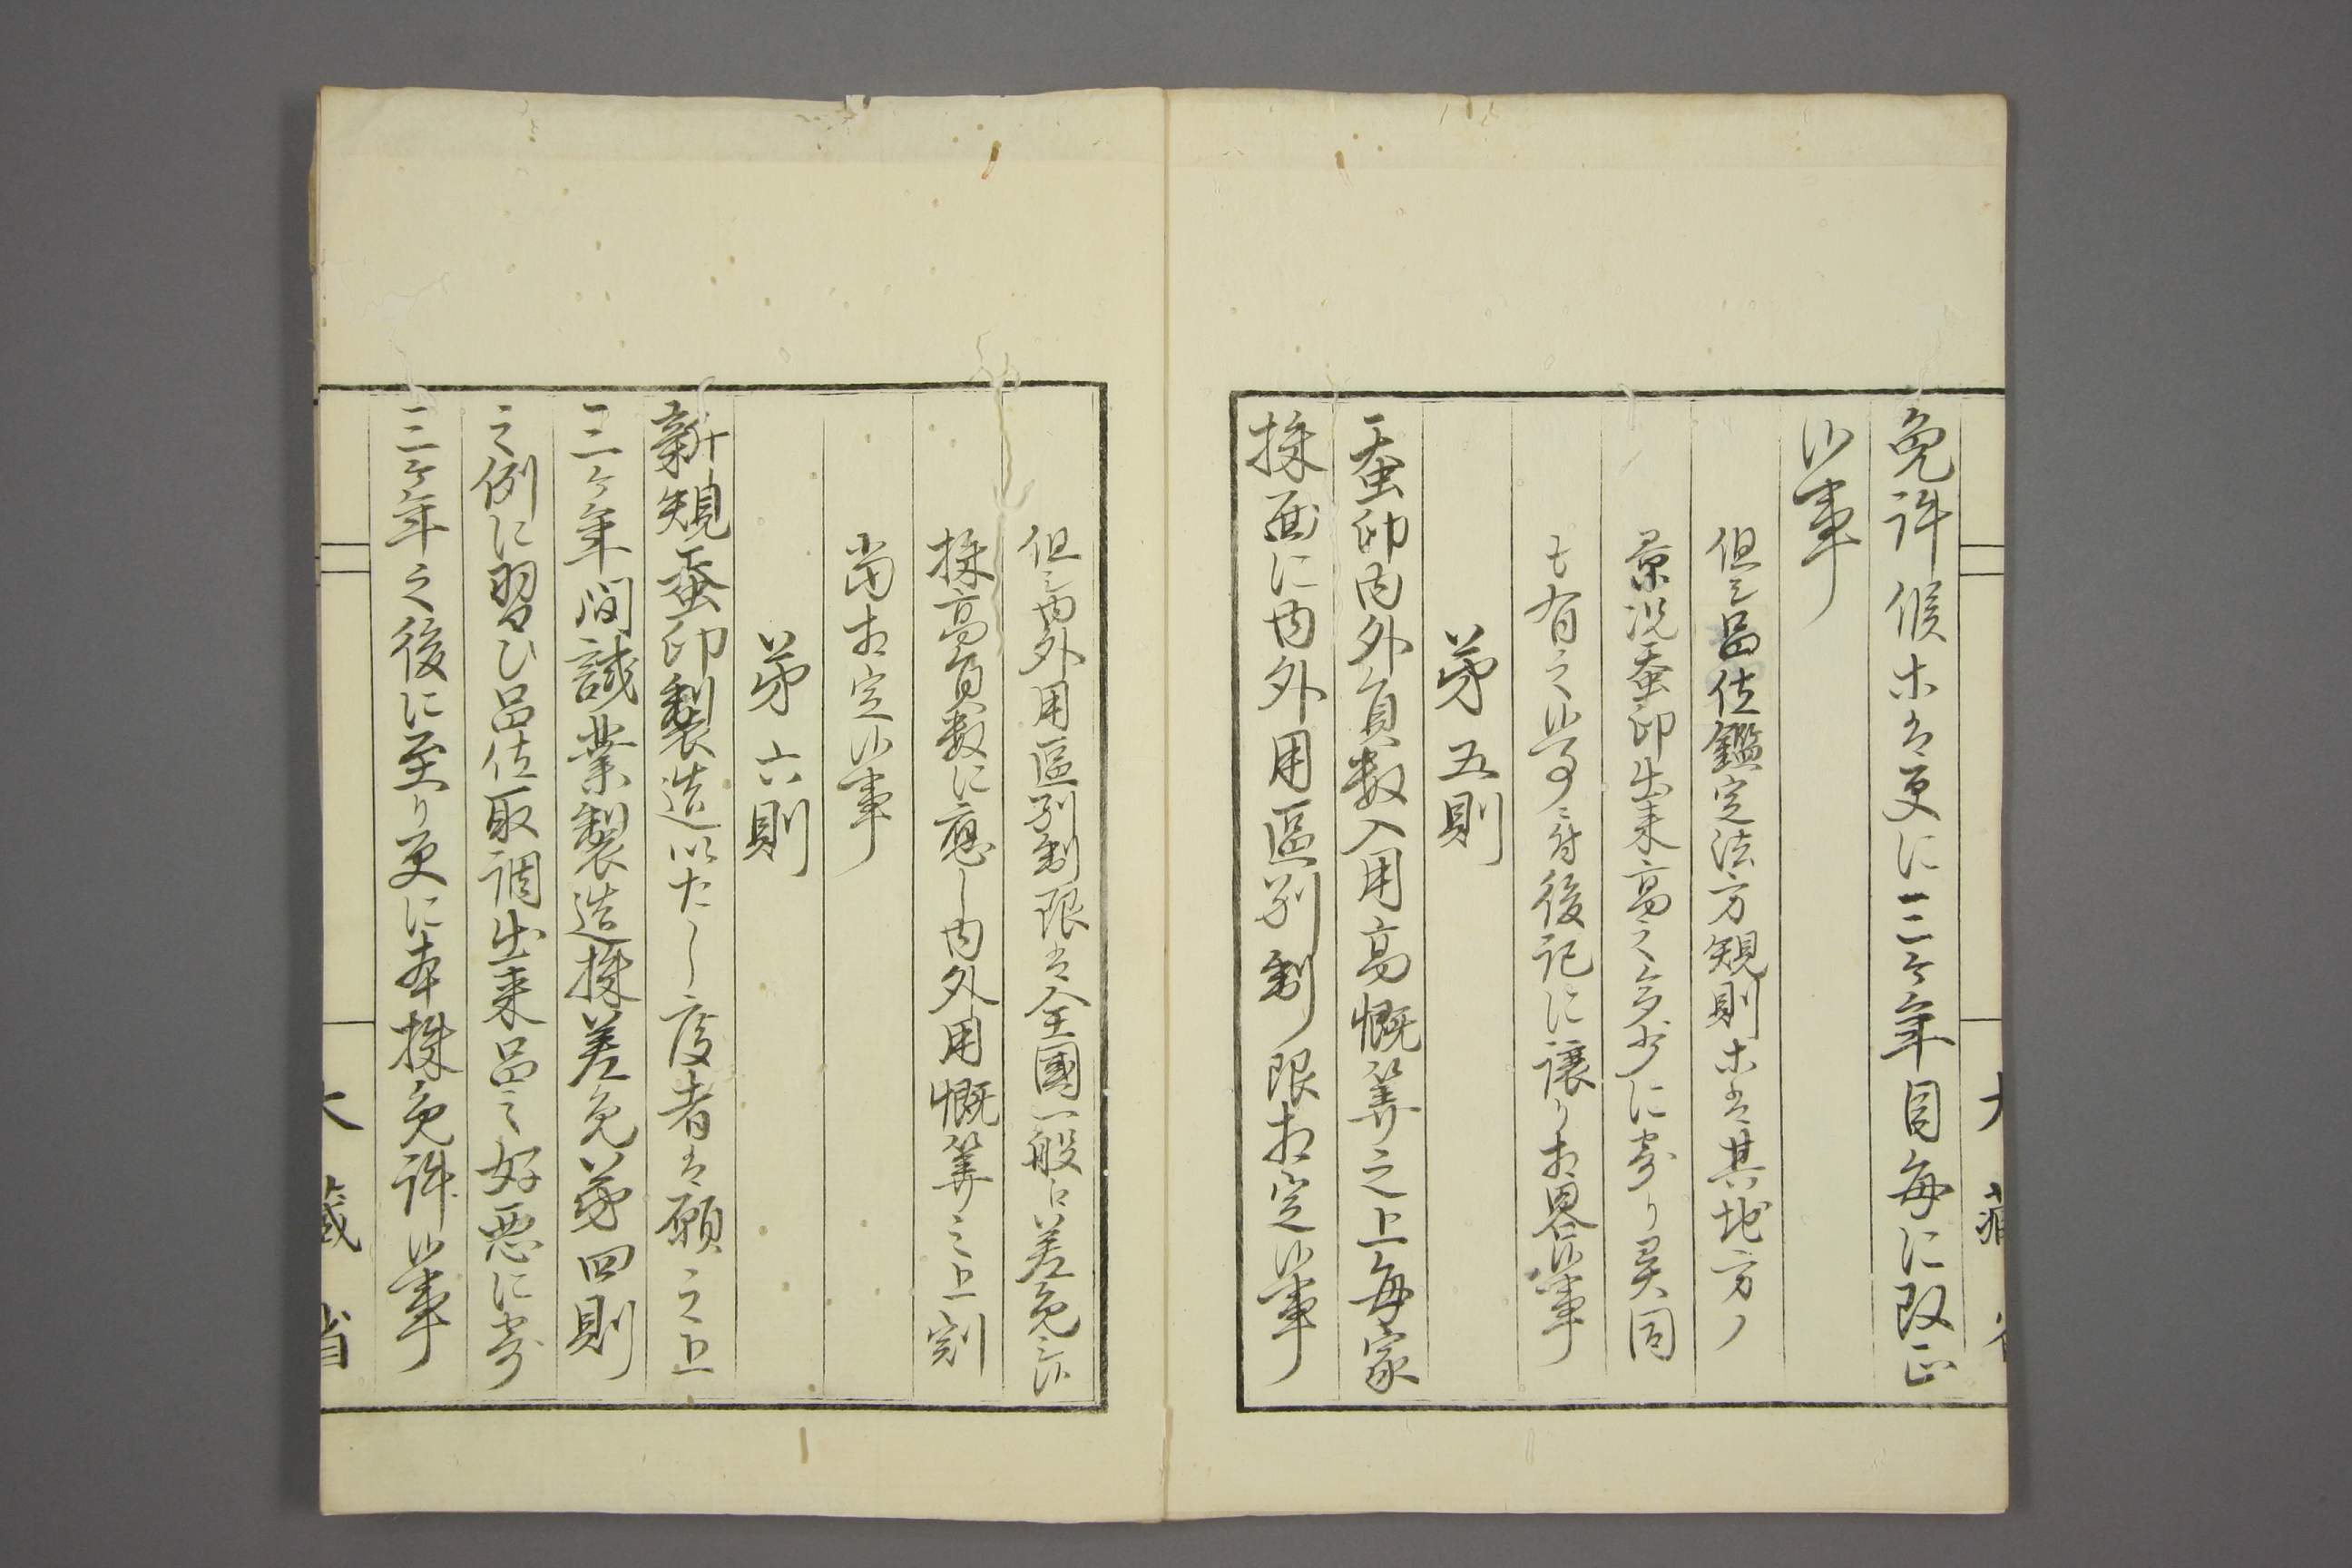 免許候ホ者更に三ヶ年目毎に改正
候事
但シ品位鑑定法方規則ホ者其地方ノ
景况蚕卵出来高之多少に寄り異同
も有之候事ニ付後記に讓り相畧候事
第五則
蚕卵内外員数入用高慨算之上毎家
株面に内外用區別割限相定候事
但シ内外用區別割限者全國一般江差免シ候
株高員数に應し内外用慨算之上割
當相定候事
第六則
新規蚕卵製造以たし度者者願之上
三ヶ年間試業製造株差免第四則
之例に習ひ品位取調出来品之好悪に寄
三ヶ年之後に至り更に本株免許候事
大藏省